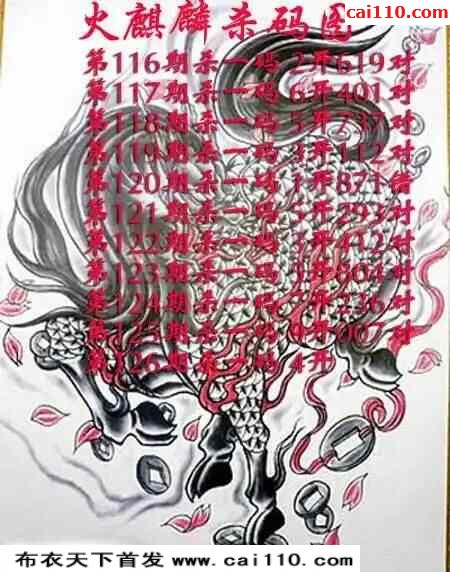 cai110.com
火麒麟杀码图
第116期杀一码 2开619对
第117期杀一码 6开401对
第118期杀一码 5开737对
第119期杀一码 3开112对
第120期杀一码 1开871错
第121期杀一码 5开293对
第122期杀一码 3开412对
第123期杀一码 3开804对
第124期杀一码 7开236对
第125期杀一码 9开007对
第126期杀一码 4开
布衣天下首发 www.cai110.com